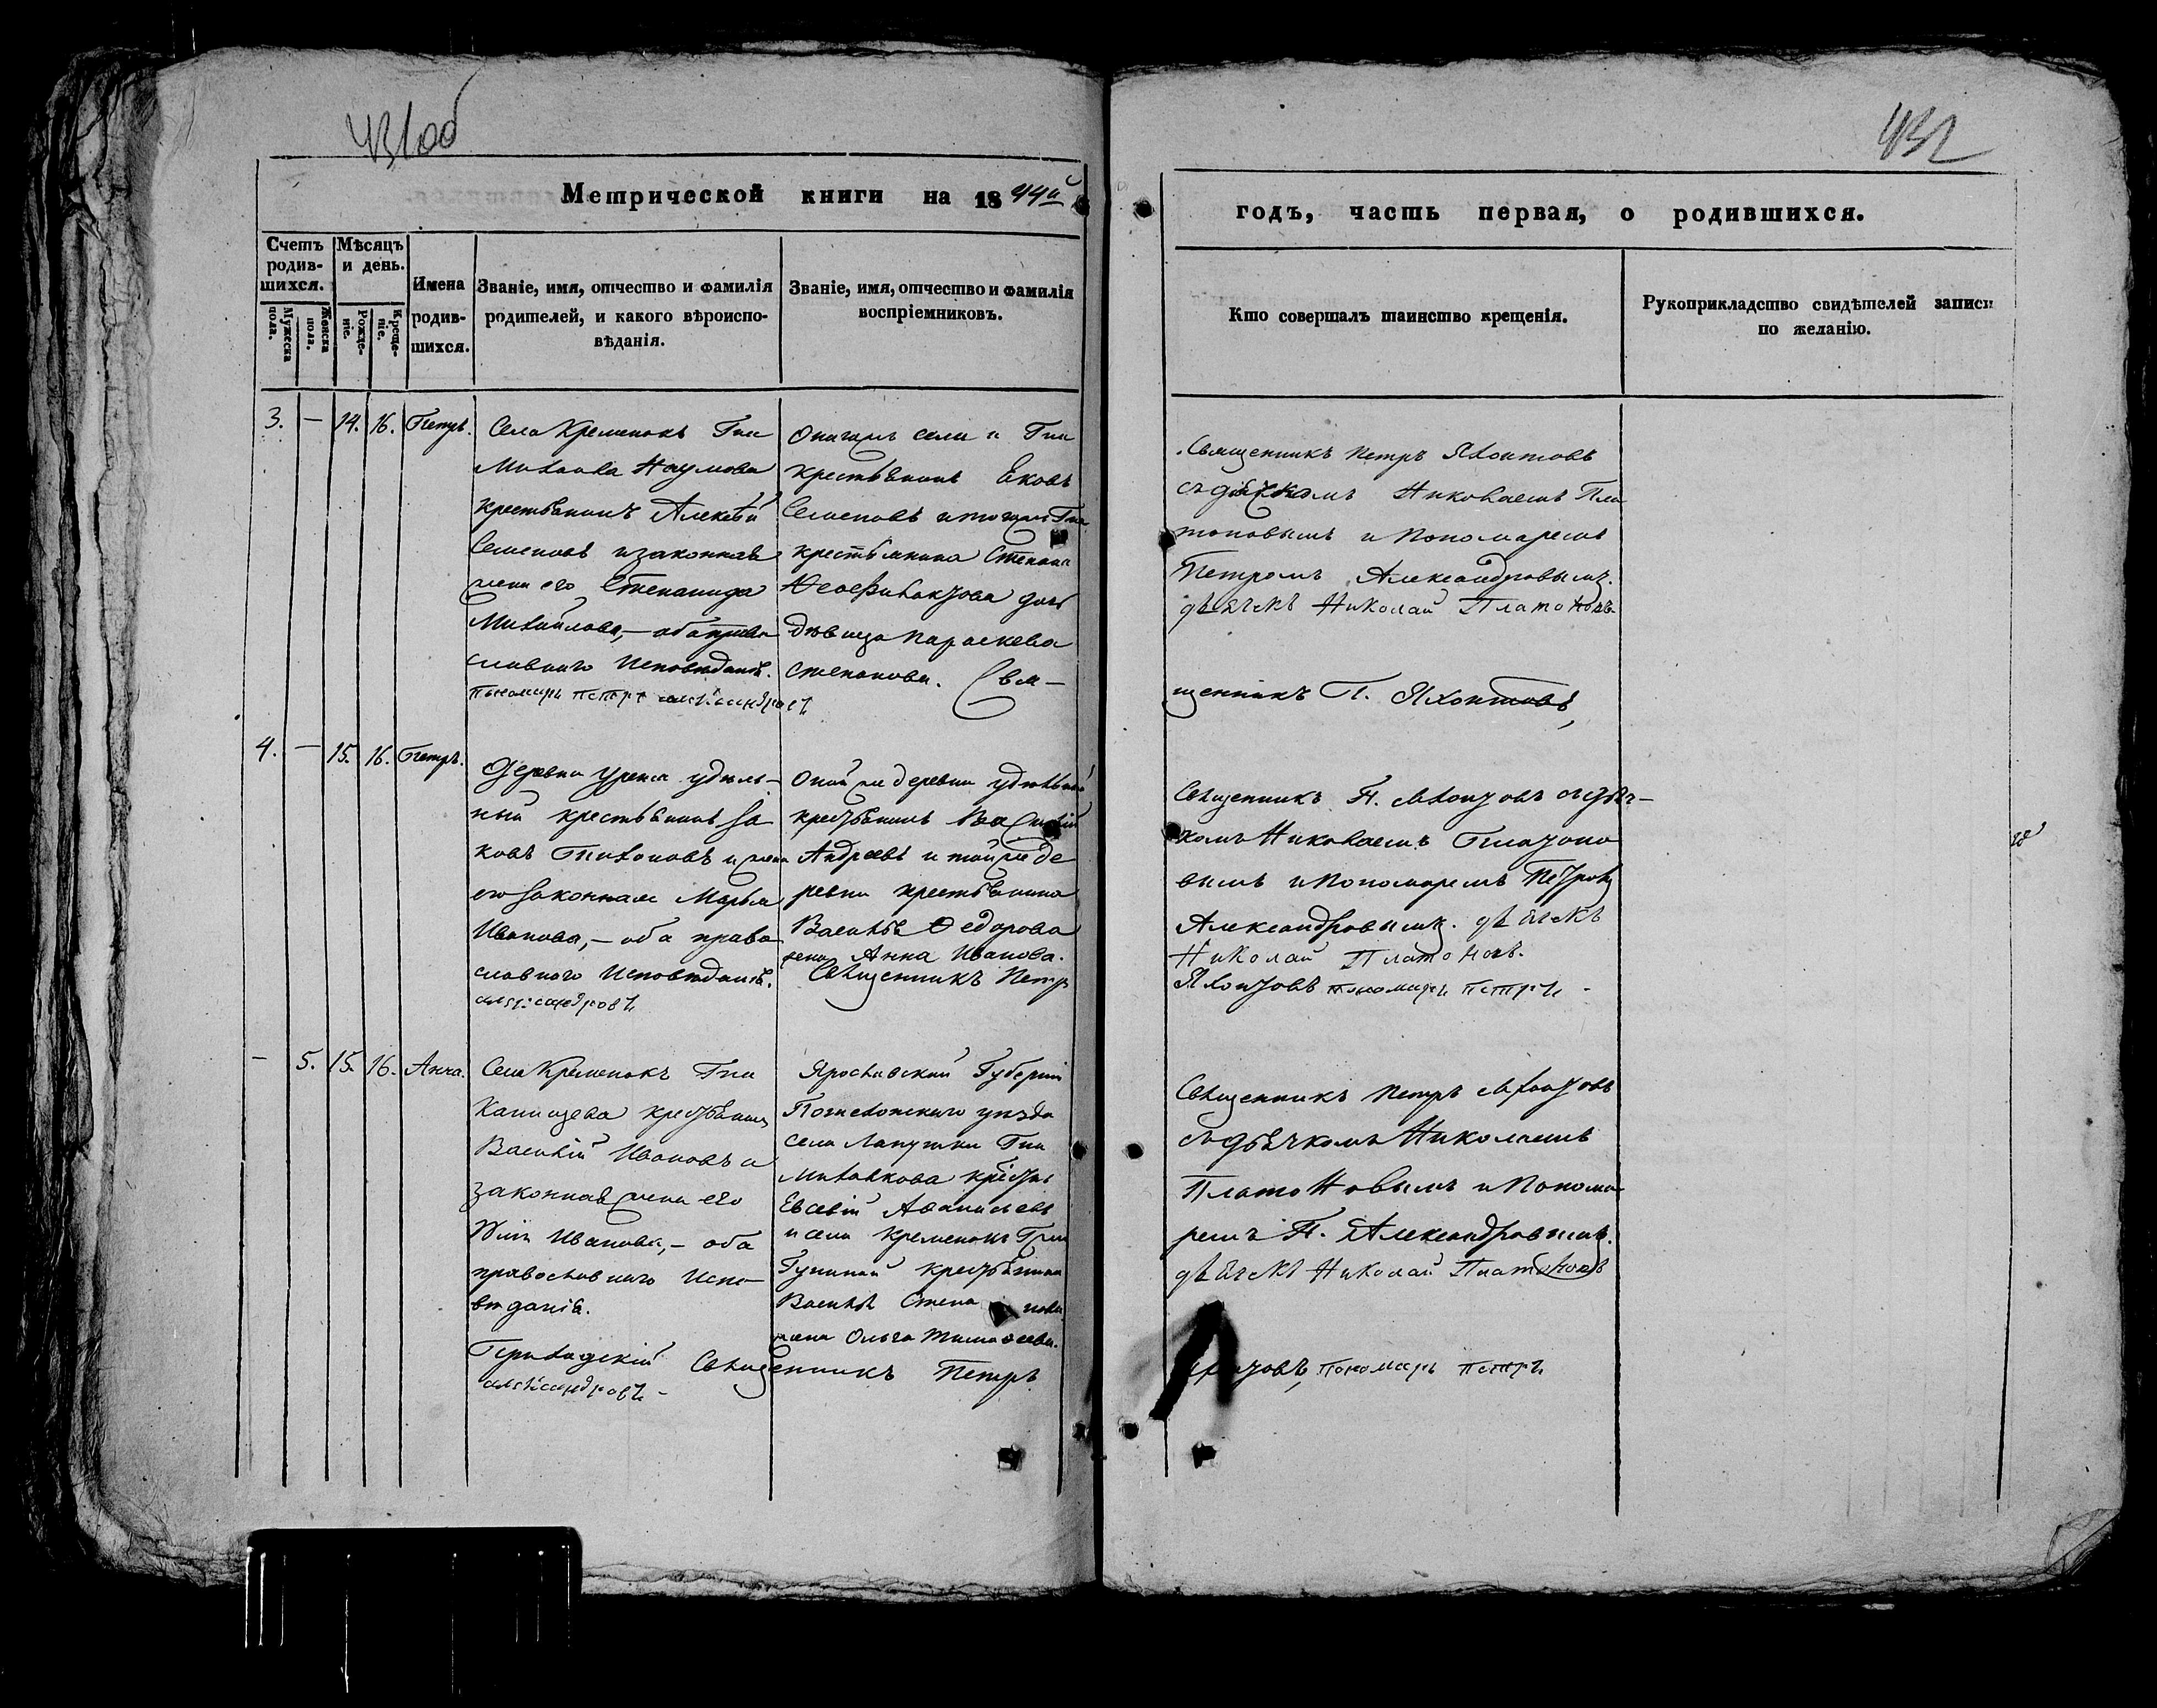 431об
432
Метрической книги на 1844й
годъ, часть первая, о родившихся.
Счетъ родив-шихся.
Мѣсяцъ и день.
Мужеска пола.
Женска пола.
Рожде-ніе.
Креще-ніе.
Имена родив-шихся.
Званіе, имя, отчество и фамилія
родителей, и какого вѣроиспо-
вѣданія.
Званіе, имя, отчество и фамилія
воспріемниковъ.
Кто совершалъ таинство крещенія.
Рукоприкладство свидѣтелей записи
по желанію.
3. — 14. 16. Петръ.
Села Кременокъ Гна
Наумова
крестьянинъ Алексѣй
Семеновъ и законная
жена его Степанида
Михайлова, — оба право
славнаго исповѣданія.
Пономарь Петръ Александровъ
Онагожъ села и Гна
крестьянинъ Яковъ
Семеновъ и тогожъ Гна
крестьянина Степана
дочь
дѣвица Параскева
Степанова. Свя-
Священникъ Петръ Яхонтовъ
съ дьячкомъ Николаемъ Пла
тоновымъ и Пономаремъ
Петромъ Александровымъ.
дьячекъ Николай Платоновъ
щенникъ П. Яхонтовъ,
4. — 15. 16. Петръ.
Деревни Уреня удѣль-
ный крестьянинъ Іа
ковъ Тихоновъ и жена
его законная Марья
Иванова, — оба право
славнаго исповѣданія.
Александровъ
Оной же деревни удѣльный
крестьянинъ Василій
Андреевъ и той же де
ревни крестьянина
Василья Ѳедорова
жена Анна Иванова.
Священникъ Петръ
Священникъ П. Яхонтовъ съ дьяч-
комъ Николаемъ Платоно
вымъ и Пономаремъ Петромъ
Александровымъ. дьячекъ
Николай Платоновъ.
Яхонтовъ Пономарь Петръ -
— 5. 15. 16. Анна.
Села Кременокъ Гна
крестьянинъ
Василій Ивановъ и
законная жена его
Ивановна, — оба
православнаго испо-
вѣданія.
Приходскій Священникъ Петръ
Александровъ -
Ярославской Губерніи
Пошехонскаго уѣзда
села Лапушки Гна
крестьян
Евсевій Аѳанасьевъ
и села Кременокъ Гжи
крестьянина
Василья Степанова
жена Ольга Тимоѳеева.
Священникъ Петръ Яхонтовъ
съ дьячкомъ Николаемъ
Платоновымъ и Понома
ремъ П. Александровымъ.
дьячекъ Николай Платоновъ
Яхонтовъ, Пономарь Петръ